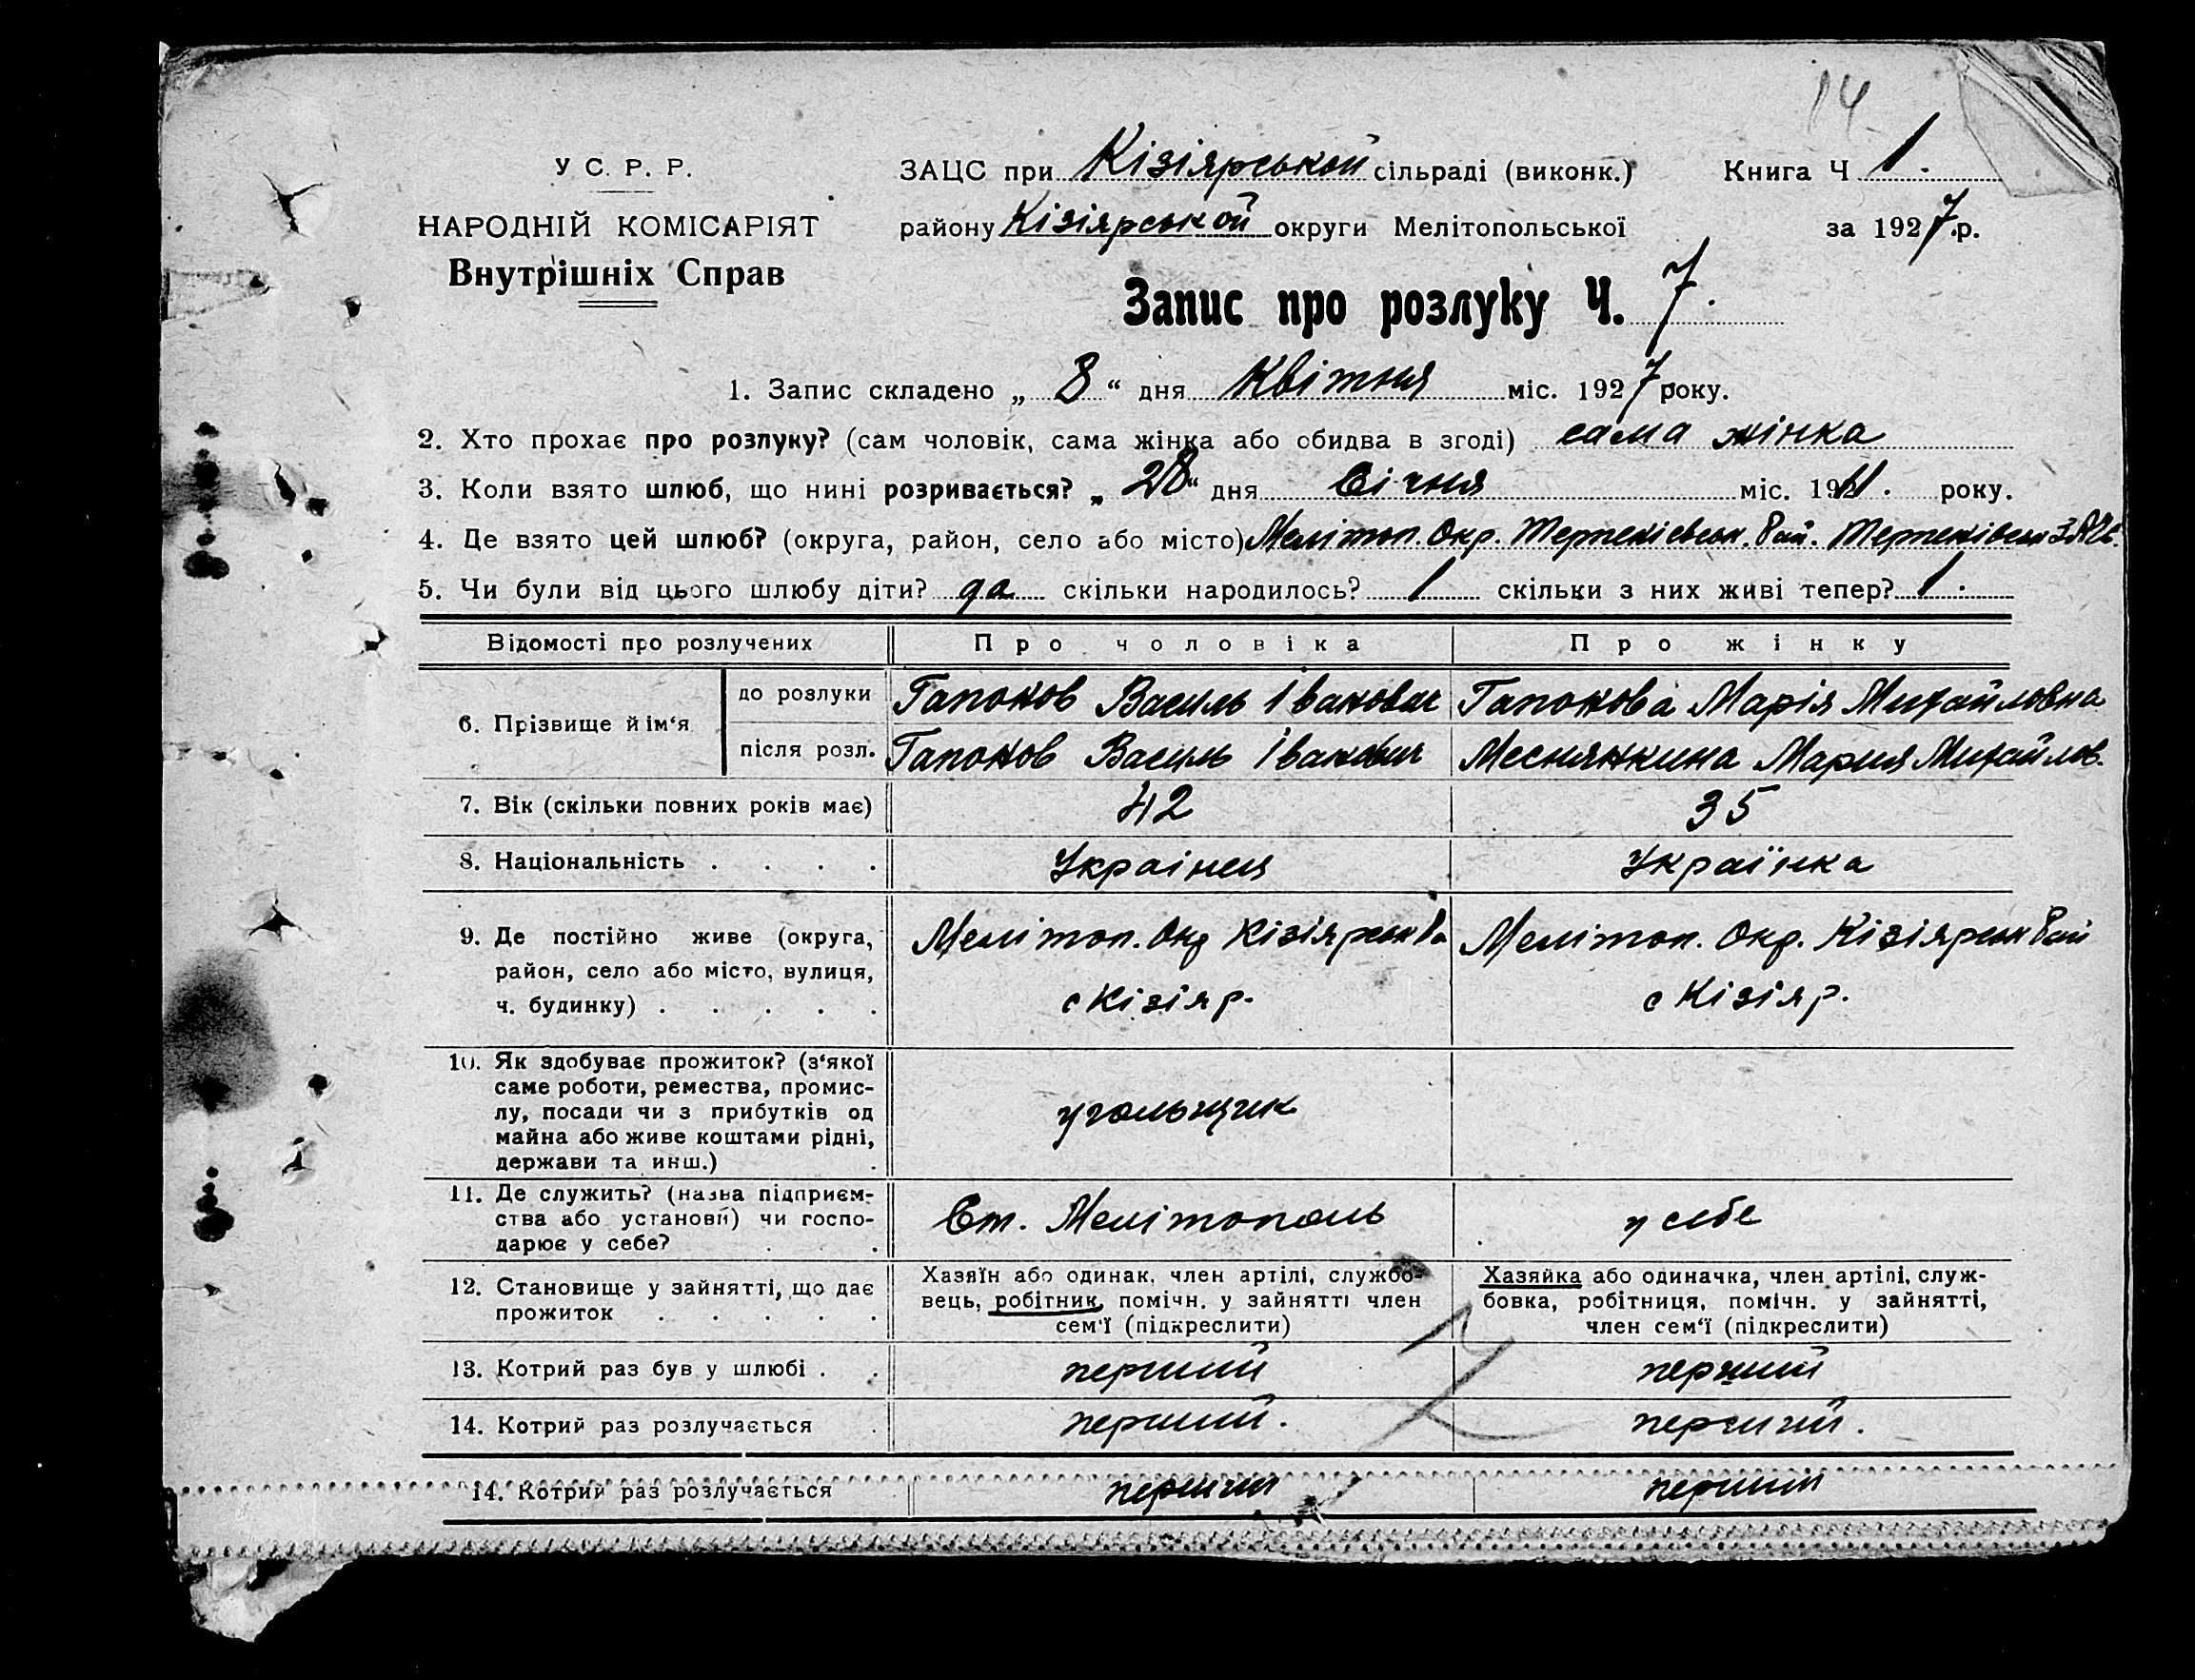 14
У С. Р. Р.
НАРОДНІЙ КОМІСАРІЯТ
Внутрішніх Справ
ЗАЦС при Кізіярськой сільраді (виконк.) Книга Ч 1.
району Кізіярськой округи Мелітопольської за 1927.р.
Запис про розлуку Ч. 7.
1. Запис складено „ 8 “ дня Квітня міс. 1927 року.
2. Хто прохає про розлуку? (сам чоловік, сама жінка або обидва в згоді) сама жінка
3. Коли взято шлюб, що нині розривається? „ 28 “ дня Січня міс. 1911. року.
4. Де взято цей шлюб? (округа, район, село або місто) Меліт оп. Окр. Терпеніевськ. Рай. Терпенівськ
5. Чи були від цього шлюбу діти? да скільки народилось? 1 скільки з них живі тепер? 1.
Відомості про розлучених Про чоловіка Про жінку
6. Прізвище й ім‘я
до розлуки Гапонов Василь Іванович Гапонова Марія Михайловна
після розл. Гапонов Василь Іванович Меснянкина Мария Михайлов.
7. Вік (скільки повних років має) 42 35
8. Національність . . . . Українець Українка
9. Де постійно живе (округа, район, село або місто, вулиця, ч. будинку) . . . . .
Меліт оп. Окр Кізіярськ Ра
с Кізіяр.
Меліт оп. Окр. Кізіярськ Рай
с Кізіяр.
10. Як здобуває прожиток? (з‘якої
саме роботи, ремества, промис-
лу, посади чи з прибутків од
майна або живе коштами рідні,
держави та инш.) .
угольщик
11. Де служить? (назва підприєм-
ства або установи) чи госпо-
дарює у себе? . .
Ст. Мелітополь
у себе
12. Становище у зайнятті, що дає
прожиток . . . . .
Хазяїн або одинак, член артілі, службо-
вець, робітник, помічн. у зайнятті член
сем‘ї (підкреслити)
Хазяйка або одиначка, член артілі, служ-
бовка, робітниця, помічн. у зайнятті,
член сем‘ї (підкреслити)
13. Котрий раз був у шлюбі . . перший перший
14. Котрий раз розлучається . перший. перший.
14. Котрий раз розлучається перший перший